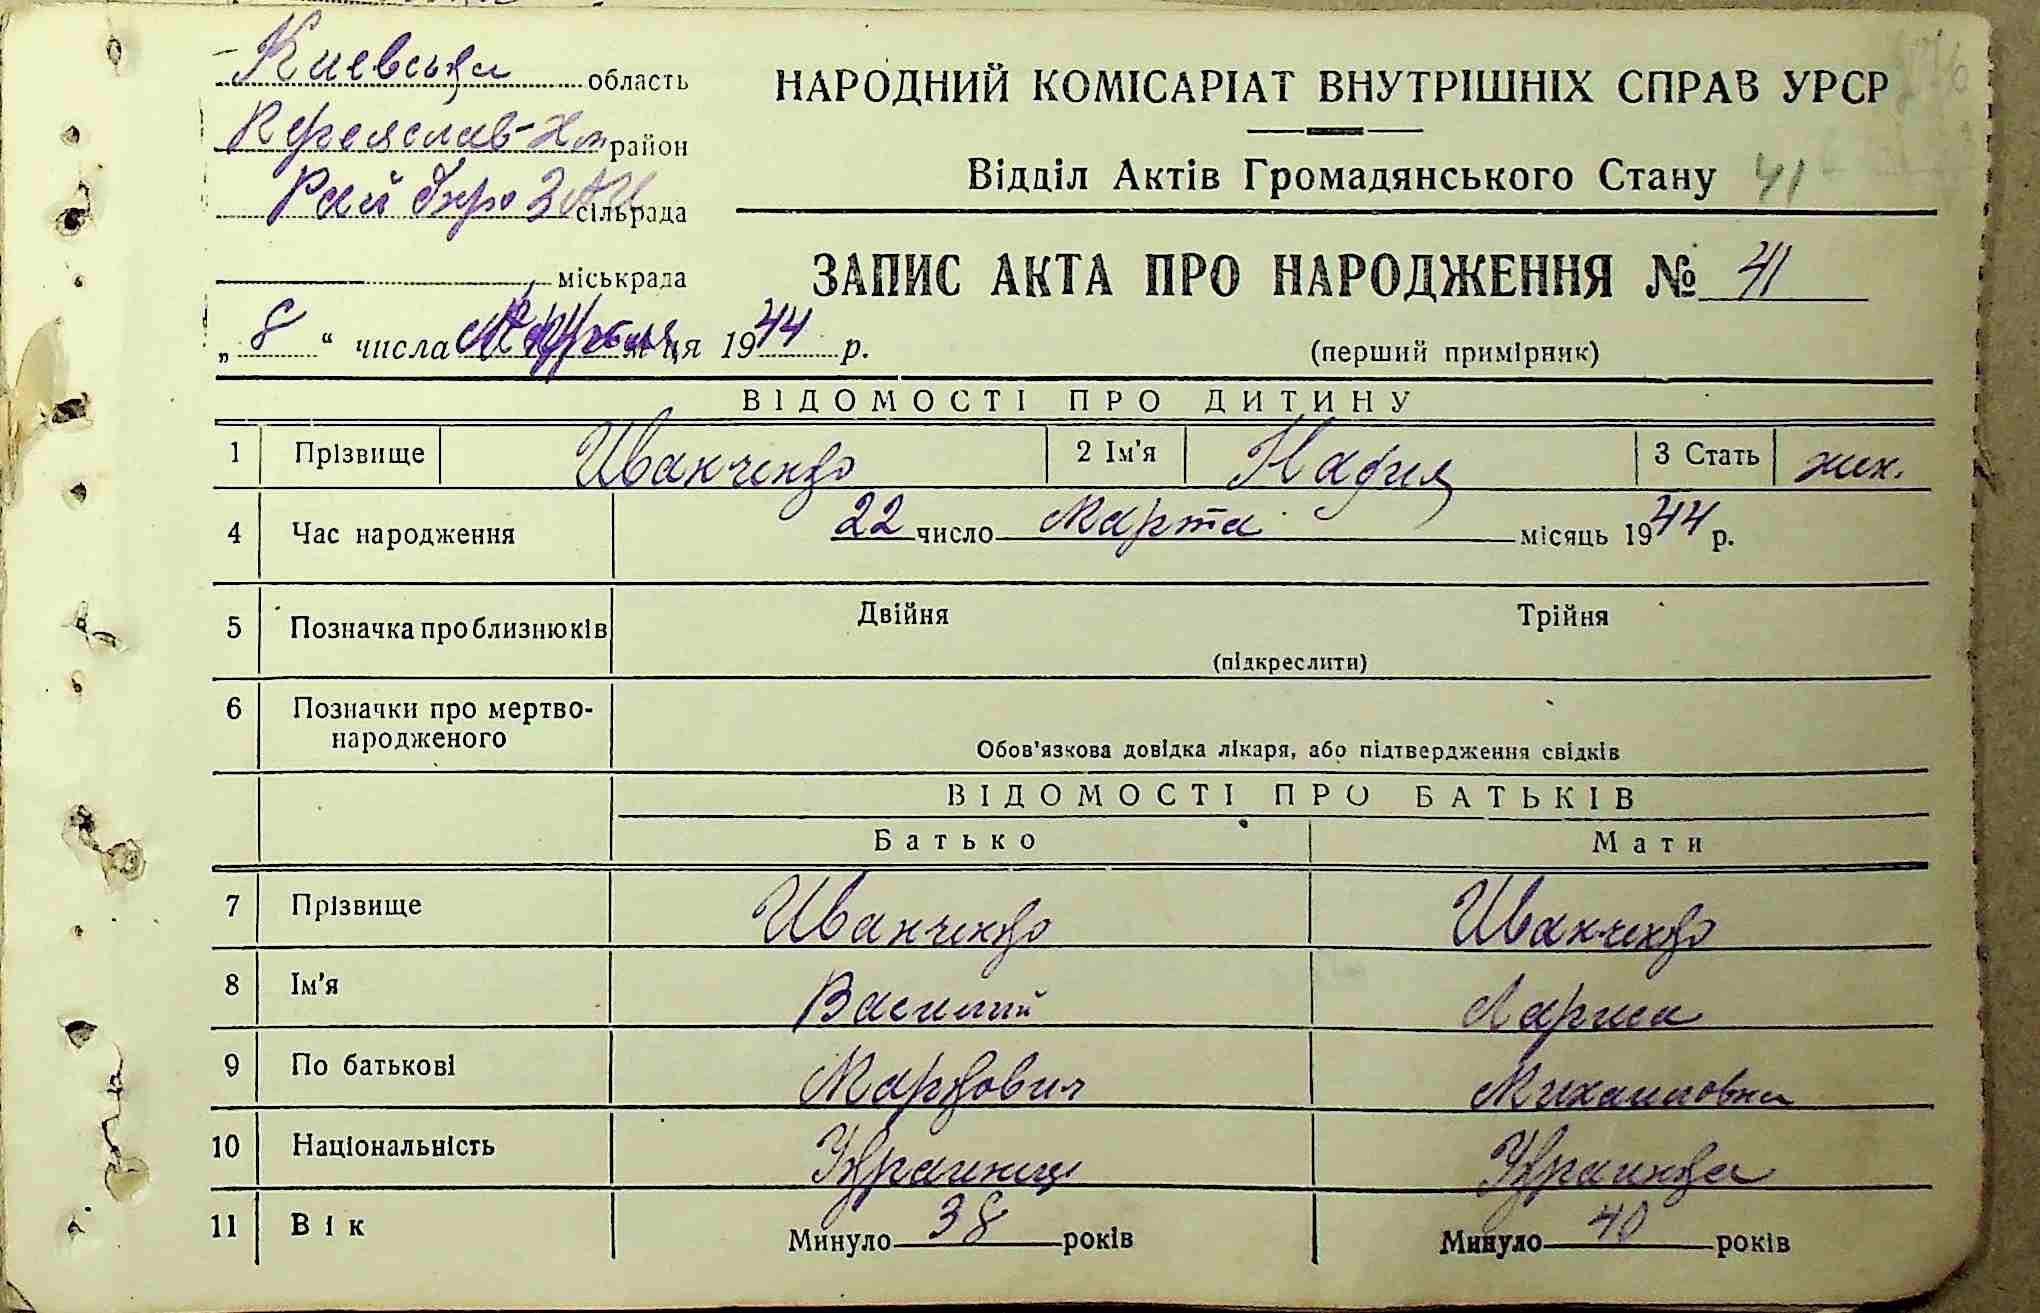 Киевська область
Переяслав-Хм район
Рай бюро ЗАГС сільрада
міськрада
НАРОДНИЙ КОМІСАРІАТ ВНУТРІШНІХ СПРАВ УРСР
Відділ Актів Громадянського Стану 41
ЗАПИС АКТА ПРО НАРОДЖЕННЯ № 41
„ 8 “ числа м ця 1944 р.
(перший примірник)
ВІДОМОСТІ ПРО ДИТИНУ
1 Прізвище Иванченко 2 Ім'я Надия 3 Стать жен.
4 Час народження 22 число Марта місяць 1944 р.
5 Позначка про близнюків Двійня Трійня
(підкреслити)
6 Позначки про мертво-
народженого
Обов'язкова довідка лікаря, або підтвердження свідків
ВІДОМОСТІ ПРО БАТЬКІВ
Батько Мати
7 Прізвище Иванченко Иванченко
8 Ім'я Василий Лариса
9 По батькові Маркович Михаиловна
10 Національність Украинец Украинка
11 Вік Минуло 38 років Минуло 40 років